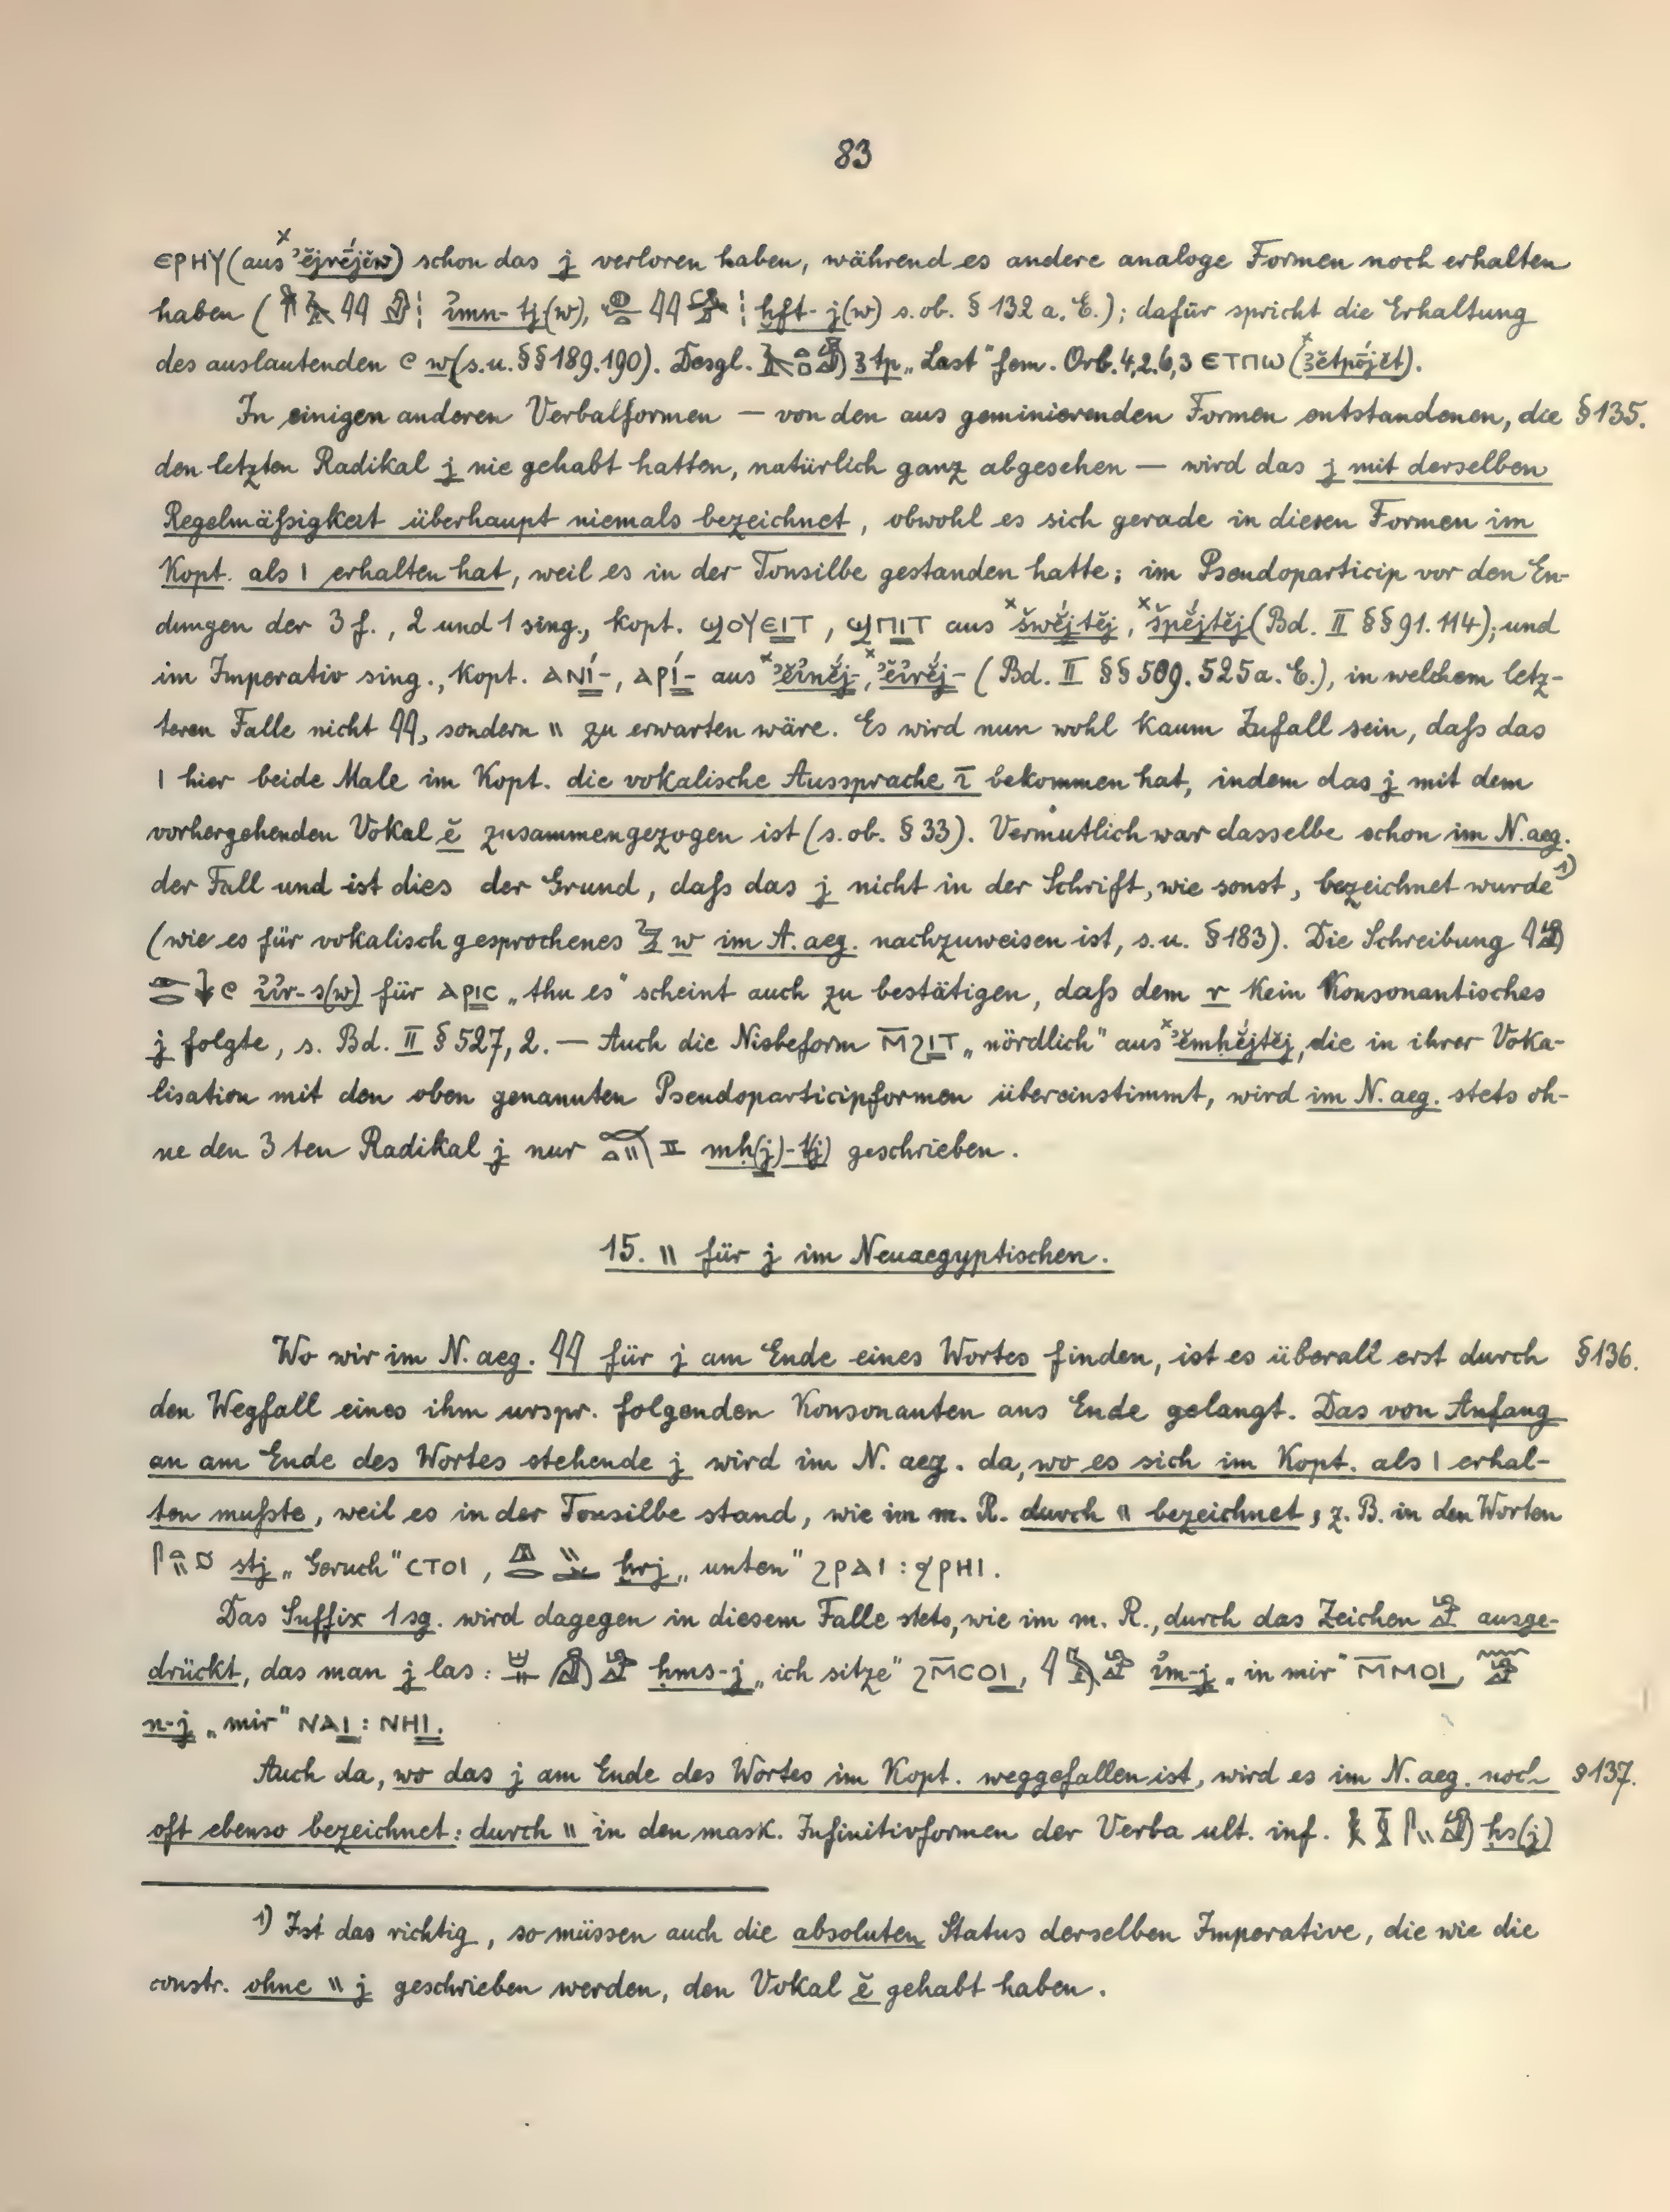 83
ⲈⲢⲎⲨ (aus ˣʾĕjrējĕw) schon das j verloren haben, während es andere analoge Formen noch erhalten
haben ( 𓇋𓇋 i҆mn-tj(w), 𓇋𓇋 ḫft-j(w) s. ob. § 132 a. E.); dafür spricht die Erhaltung
des auslautenden 𓏲 w (s. u. §§ 189. 190). Desgl. ꜣtp „Last“ fem. Orb. 4,2. 6,3 ⲈⲦⲠⲰ (ˣꜣĕtpōjĕt).
In einigen anderen Verbalformen — von den aus geminierenden Formen entstandenen, die § 135.
den letzten Radikal j nie gehabt hatten, natürlich ganz abgesehen — wird das j mit derselben
Regelmäßigkeit überhaupt niemals bezeichnet, obwohl es sich gerade in diesen Formen im
Kopt. als Ⲓ erhalten hat, weil es in der Tonsilbe gestanden hatte; im Pseudoparticip vor den En-
dungen der 3 f., 2 und 1 sing., kopt. ϢⲞⲨⲈⲒⲦ, ϢⲠⲒⲦ aus ˣšwĕ́jtĕj, ˣšpĕ́jtĕj (Bd. II §§ 91. 114); und
im Imperativ sing., kopt. ⲀⲚⲒ́-, ⲀⲢⲒ́- aus ˣʾĕi҆nĕ́j-, ˣʾĕi҆rĕ́j- (Bd. II §§ 509. 525 a. E.), in welchem letz-
teren Falle nicht 𓇋𓇋, sondern 𓏭 zu erwarten wäre. Es wird nun wohl kaum Zufall sein, daß das
Ⲓ hier beide Male im Kopt. die vokalische Aussprache ī bekommen hat, indem das j mit dem
vorhergehenden Vokal ĕ zusammengezogen ist (s. ob. § 33). Vermutlich war dasselbe schon im N. aeg.
der Fall und ist dies der Grund, daß das j nicht in der Schrift, wie sonst, bezeichnet wurde ¹⁾
(wie es für vokalisch gesprochenes 𓅱 w im A. aeg. nachzuweisen ist, s. u. § 183). Die Schreibung 𓇋𓀁
𓁹𓂋𓇓𓏲 i҆i҆r-s(w) für ⲀⲢⲒⲤ „thu es“ scheint auch zu bestätigen, daß dem r kein Konsonantisches
j folgte, s. Bd. II § 527, 2. — Auch die Nisbeform Ⲙ̅ϨⲒⲦ „nördlich“ aus ˣʾĕmḥĕ́jtĕj, die in ihrer Voka-
lisation mit den oben genannten Pseudoparticipformen übereinstimmt, wird im N. aeg. stets oh-
ne den 3ten Radikal j nur mḥ(j)-t(j) geschrieben.
15. 𓏭 für j im Neuaegyptischen.
Wo wir im N. aeg. 𓇋𓇋 für j am Ende eines Wortes finden, ist es überall erst durch § 136.
den Wegfall eines ihm urspr. folgenden Konsonanten ans Ende gelangt. Das von Anfang
an am Ende des Wortes stehende j wird im N. aeg. da, wo es sich im Kopt. als Ⲓ erhal-
ten mußte, weil es in der Tonsilbe stand, wie im m. R. durch 𓏭 bezeichnet, z. B. in den Worten
𓋴𓏏𓏭 stj „Geruch“ ⲤⲦⲞⲒ, ẖrj „unten“ ϨⲢⲀⲒ : ϦⲢⲎⲒ.
Das Suffix 1 sg. wird dagegen in diesem Falle stets, wie im m. R., durch das Zeichen 𓀁 ausge-
drückt, das man j las: ḥms-j „ich sitze“ ϨⲘ̅ⲤⲞⲒ, i҆m-j „in mir“ Ⲙ̅ⲘⲞⲒ,
n-j „mir“ ⲚⲀⲒ : ⲚⲎⲒ.
Auch da, wo das j am Ende des Wortes im Kopt. weggefallen ist, wird es im N. aeg. noch § 137.
oft ebenso bezeichnet: durch 𓏭 in den mask. Infinitivformen der Verba ult. inf. ḥs(j)
¹⁾ Ist das richtig, so müssen auch die absoluten Status derselben Imperative, die wie die
constr. ohne 𓏭 j geschrieben werden, den Vokal ĕ gehabt haben.